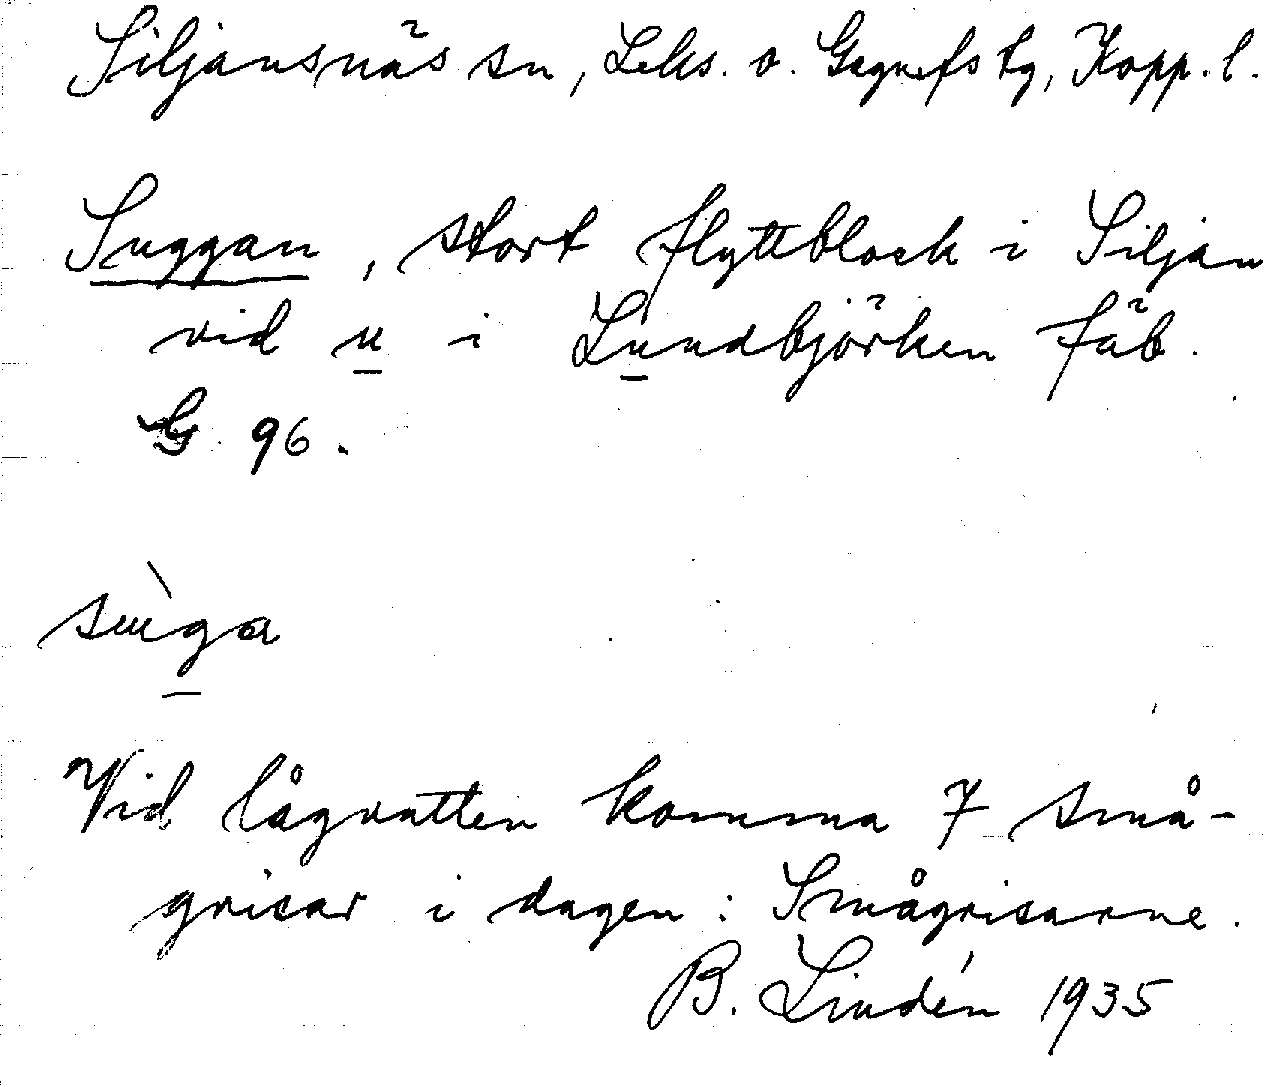 Siljansnäs sn, Leks. o. Gagnefs tg, Kopp. l.
Suggan, stort flyttblock i Siljan
vid u i Lundbjörken fäb.
G 96.
Vid lågvatten komma 7 små-
grisar i dagen: Smågrisarne.
B. Lindén 1935